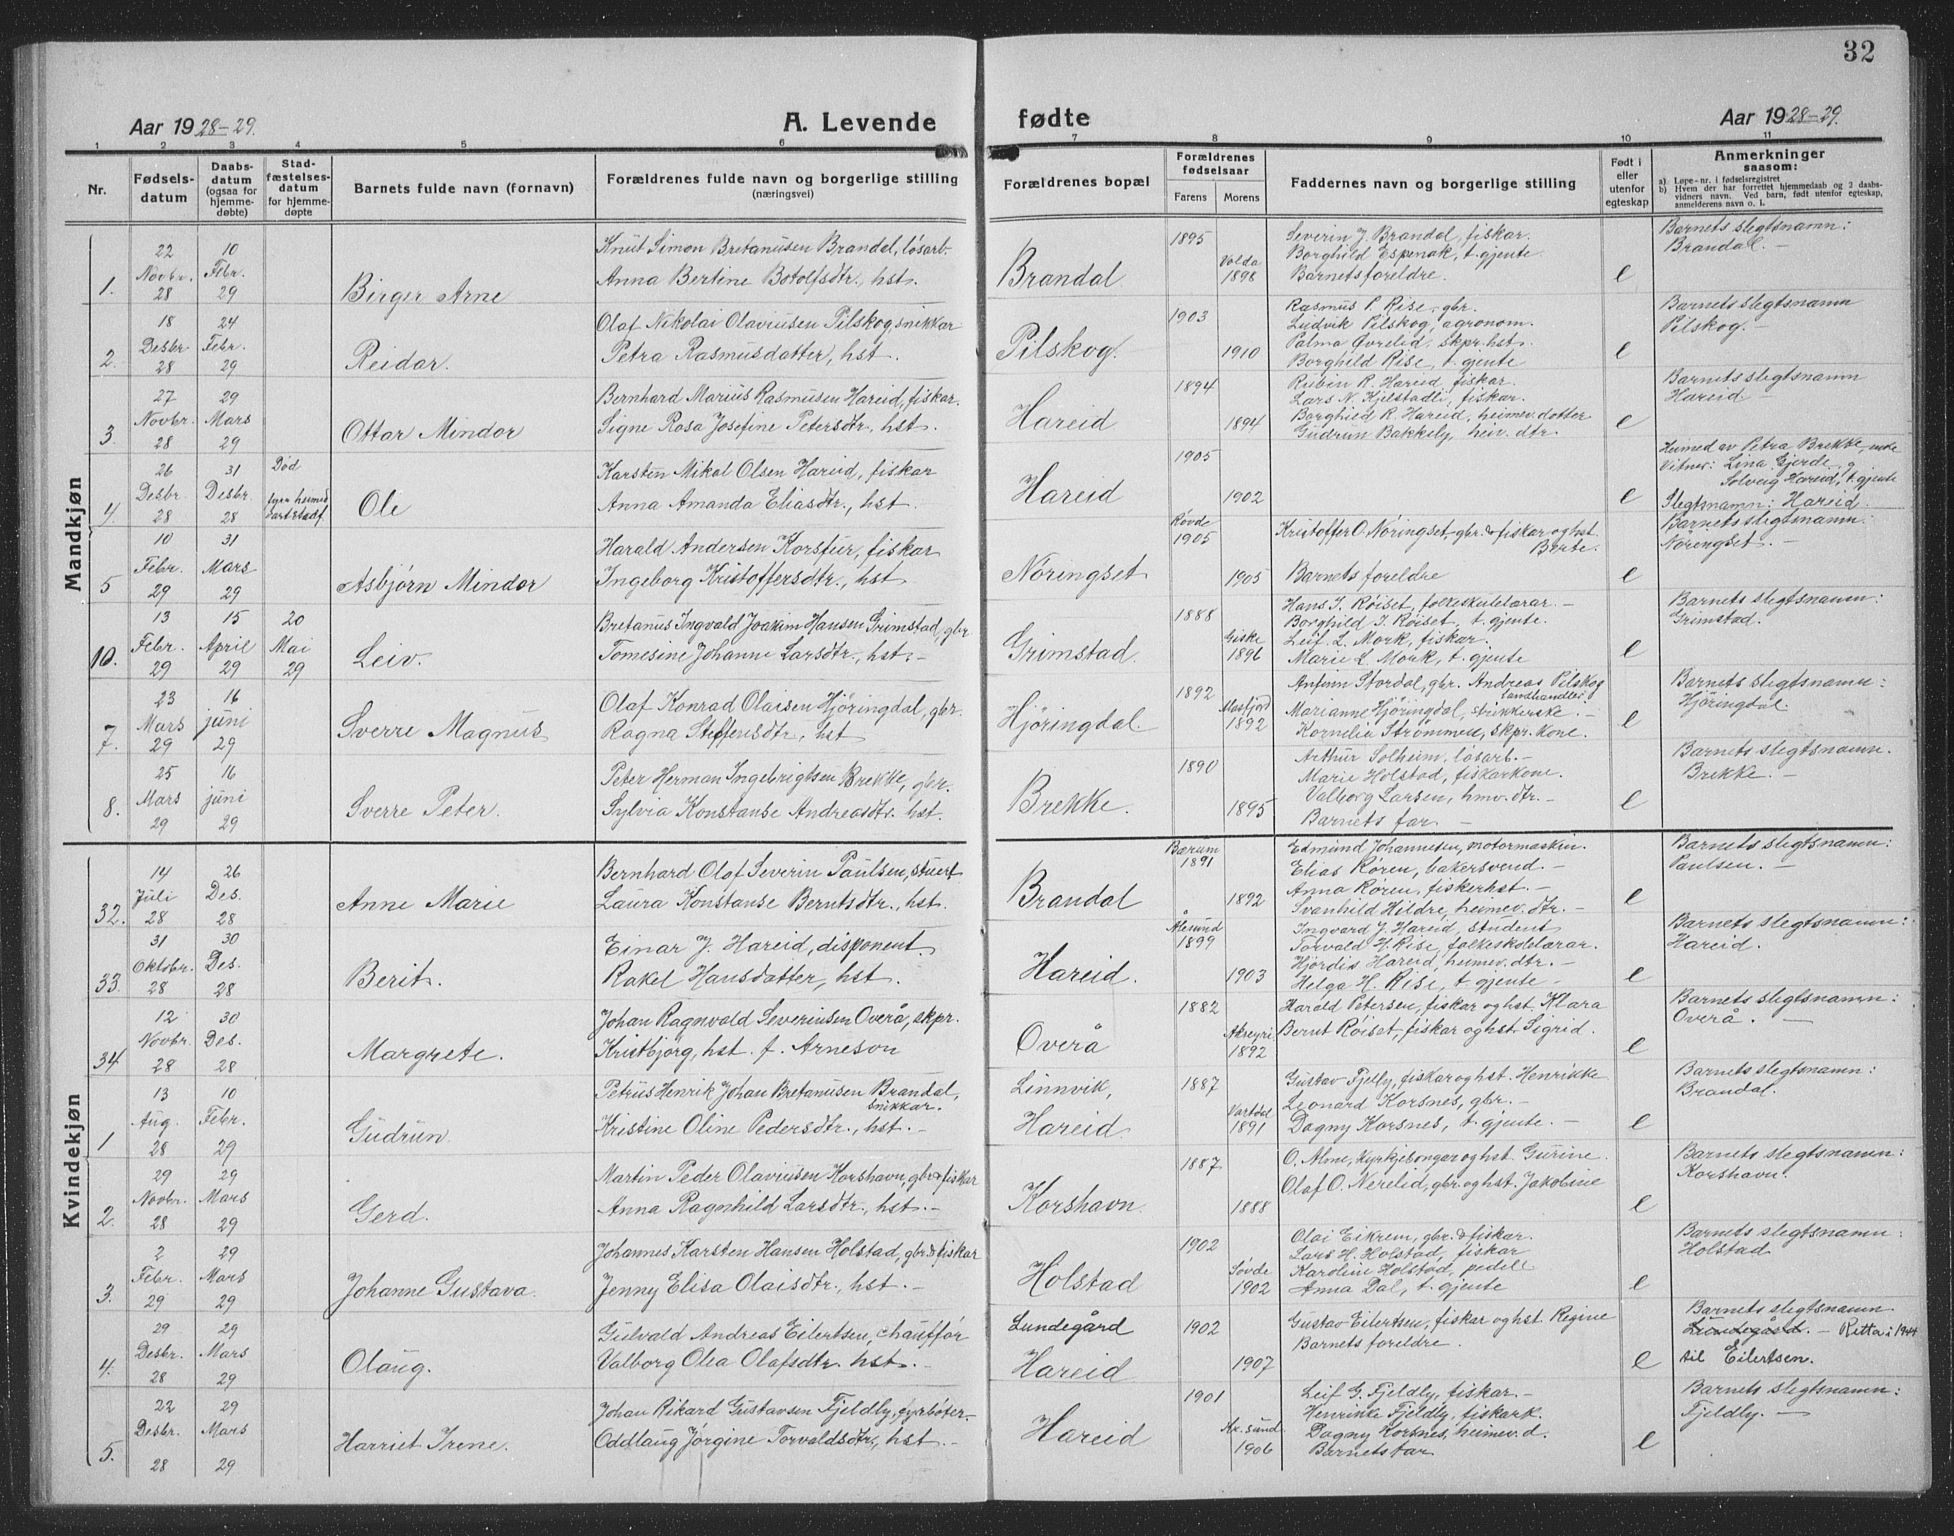 32
Aar 1928-29.
A. Levende
fødte
Aar 1928-29.
1 2 3 4 5 6 7 8 9 10 11
Nr.
Fødselsdatum
Daabsdatum (ogsaa for hjemmedøbte)
Stadfæstelsesdatum for hjemmedøpte
Barnets fulde navn (fornavn)
Forældrenes fulde navn og borgerlige stilling
(næringsvei)
Forældrenes bopæl
Forældrenes fødselsaar
Farens Morens
Faddernes navn og borgerlige stilling
Født i eller utenfor egteskap
Anmerkninger saasom:
a) Løpe-nr. i fødselsregistret
b) Hvem der har forrettet hjemmedaab og 2 daabsvidners navn. Ved barn, født utenfor egteskap, anmelderens navn o. l.
Mandkjøn
1. 22 Novbr. 28 10 Febr. 29 Birger Arne
Knut Simon Bretanusen Brandal, løsarb.
Anna Bertine Botolfsdtr., hst.
Brandal 1895 Volda 1898
Severin J. Brandal, fiskar.
Borghild Espenak, t. gjente
Barnets foreldre.
e
Barnets slegtsnamn:
Brandal. —
2. 18 Desbr. 28 24 Febr. 29 Reidar.
Olaf Nikolai Olaviusen Pilskog, snikkar
Petra Rasmusdatter, hst.
Pilskog. 1903 1910
Rasmus P. Rise, gbr.
Ludvik Pilskog, agronom.
Palma Øvrelid, skpr. hst.
Borghild Rise, t. gjente
e
Barnets slegtsnamn
Pilskog. —
3. 27 Novbr. 28 29 Mars 29 Ottar Mindor
Bernhard Marius Rasmusen Hareid, fiskar.
Signe Rosa Josefine Petersdtr., hst.
Hareid 1894 1894
Rubin R. Hareid, fiskar.
Lars N. Kjelstadli, fiskar.
Borghild R. Hareid, heimev. dotter
Gudrun Bakkely, heiv. dtr.
e
Barnets slegtsnamn
Hareid —
4. 26 Desbr. 28 31 Desbr. 28 Død
Ole
Karsten Mikal Olsen Hareid, fiskar
Anna Amanda Eliasdtr., hst
Hareid 1905 1902
e
Heimed av Petra Brekke,
Vitner: Lina Gjerde, og
Solveig Hareid, t. gjente
Slegtsnamn: Hareid.
5 10 Febr. 29 31 Mars 29 Asbjørn Mindor
Harald Andersen Korsfur, fiskar
Ingeborg Kristoffersdtr., hst
Nöringset Røvde 1905 1905
Kristoffer O. Nöringset gbr. & fiskar og hst
Berte.
Barnets foreldre
e
Barnets slegtsnamn:
Nöringset. —
10. 13 Febr. 29 15 April 29 20 Mai 29 Leiv.
Bretanus Ingvald Joakim Hansen Grimstad, gbr
Tomesine Johanne Larsdtr., hst. —
Grimstad. 1888 Giske 1896
Hans I. Röiset, folkeskulelærar. —
Borghild I. Röiset, t. gjente.
Leif L. Mork, fiskar.
Marie L. Mork, t. gjente
e
Barnets slegtsnamn:
Grimstad.
7. 23 Mars 29 16 juni 29 Sverre Magnus
Olaf Konrad Olaisen Hjöringdal, gbr.
Ragna Steffensdtr., hst
Hjöringdal. 1892 Masfjord 1892
Anfinn Stordal, gbr. Andreas Pilskog
landhandler
Marianne Hjöringdal, strikkerske. —
Kornelia Strömmen, skpr. kone.
e
Barnets slegtsnamn:
Hjöringdal.
8. 25 Mars 29 16 juni 29 Sverre Peter.
Peter Herman Ingebrigtsen Brekke, gbr.
Sylvia Konstanse Andreasdtr. hst.
Brekke. 1890 1895
Arthur Solheim, løsarb. —
Marie Holstad, fiskarkone.
Valborg Larsen, hmv. dtr. —
Barnets far. —
e
Barnets slegtsnamn.
Brekke. —
Kvindekjøn
32. 14 Juli 28 26 Des. 28 Anne Marie
Bernhard Olaf Severin Paulsen, stuert
Laura Konstanse Berntsdtr., hst.
Brandal Bærum 1891 1892
Edmund Johannesen, motormaskin.
Elias Røren, bakersvend. —
Anna Røren, fiskerhst. —
Svanhild Hildre, heimev. dtr. —
e
Barnets slegtsnamn:
Paulsen. —
33. 31 Oktobr. 28 30 Des. 28 Berit.
Einar J. Hareid, disponent.
Rakel Hansdatter, hst.
Hareid. Ålesund 1899 1903
Ingvard J. Hareid, student
Torvald H. Rise, folkeskolelærar.
Hjördis Hareid, heimev. dtr. —
Helga H. Rise, t. gjente —
e
Barnets slegtsnamn:
Hareid.
34 12 Novbr. 28 30 Des. 28 Margrete.
Johan Ragnvald Severinsen Overå, skpr.
Kristbjörg, hst. f. Arneson
Overå 1882 Akreyri 1892
Harald Petersen, fiskar og hst Klara
Bernt Röiset, fiskar og hst. Sigrid.
e
Barnets slegtsnamn:
Overå. —
1 13 Aug. 28 10 Febr. 29 Gudrun.
Petrus Henrik Johan Bretanusen Brandal,
snikkar.
Kristine Oline Pedersdtr., hst. —
Linnvik,
Hareid 1887 Vartdal 1891
Gustav Fjelly, fiskar og hst. Henrikke
Leonard Korsnes, gbr. —
Dagny Korsnes, t. gjente. —
e
Barnets slegtsnamn:
Brandal.
2. 29 Novbr. 28 29 Mars 29 Gerd.
Martin Peder Olaviusen Korshavn, gbr & fiskar
Anna Ragnhild Larsdtr., hst. —
Korshavn. 1887 1888
O. Alme, kyrkjesongar og hst. Gurine.
Olaf O. Nerelid, gbr. og hst. Jakobine
e
Barnets slegtsnamn:
Korshavn.
3. 2 Febr. 29 29 Mars 29 Johanne Gustava.
Johannes Karsten Hansen Holstad, gbr. & fiskar
Jenny Elisa Olaisdtr., hst. —
Holstad 1902 Søvde 1902
Olai Eikrem, gbr. & fiskar.
Lars H. Holstad, fiskar
Karoline Holstad, pedell
Anna Dal, t. gjente
e
Barnets slegtsnamn:
Holstad
4. 29 Desbr. 28 29 Mars 29 Olaug.
Gulvald Andreas Eilertsen, chauffør
Valborg Olea Olafsdtr. hst. —
Lundegård
Hareid 1902 1907
Gustav Eilertsen, fiskar og hst. Regine
Barnets foreldre.
e
Barnets slegtsnamn
Lundegård. — Retta i 1944
til Eilertsen.
5. 22 Desbr. 28 29 Mars 29 Harriet Irene.
Johan Rikard Gustavsen Fjeldly, fyrbøter.
Oddlaug Jørgine Torvaldsdtr., hst. —
Hareid 1901 Kr. sund 1906
Leif G. Fjeldly, fiskar. —
Henrikke Fjeldly, fiskark.
Dagny Korsnes, heimev. d.
Barnets far
e
Barnets slegtsnamn:
Fjeldly. —